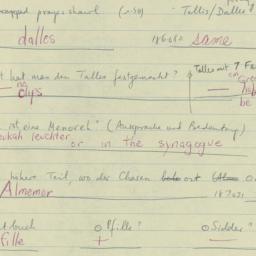 wrapped prayer shawl Tallis/Dalles
dalles 186060 same
t hat man den Talles festgemacht? Talles mit 7 F
— no clips —
ist eine Menoreh" (Aussprache und Bedeutung)
ukah leuchter or in the synagogue
höhere Teil, wo der Chasen ort
Almemor 187031
tbuch Pfille" Sidder"
fille + —